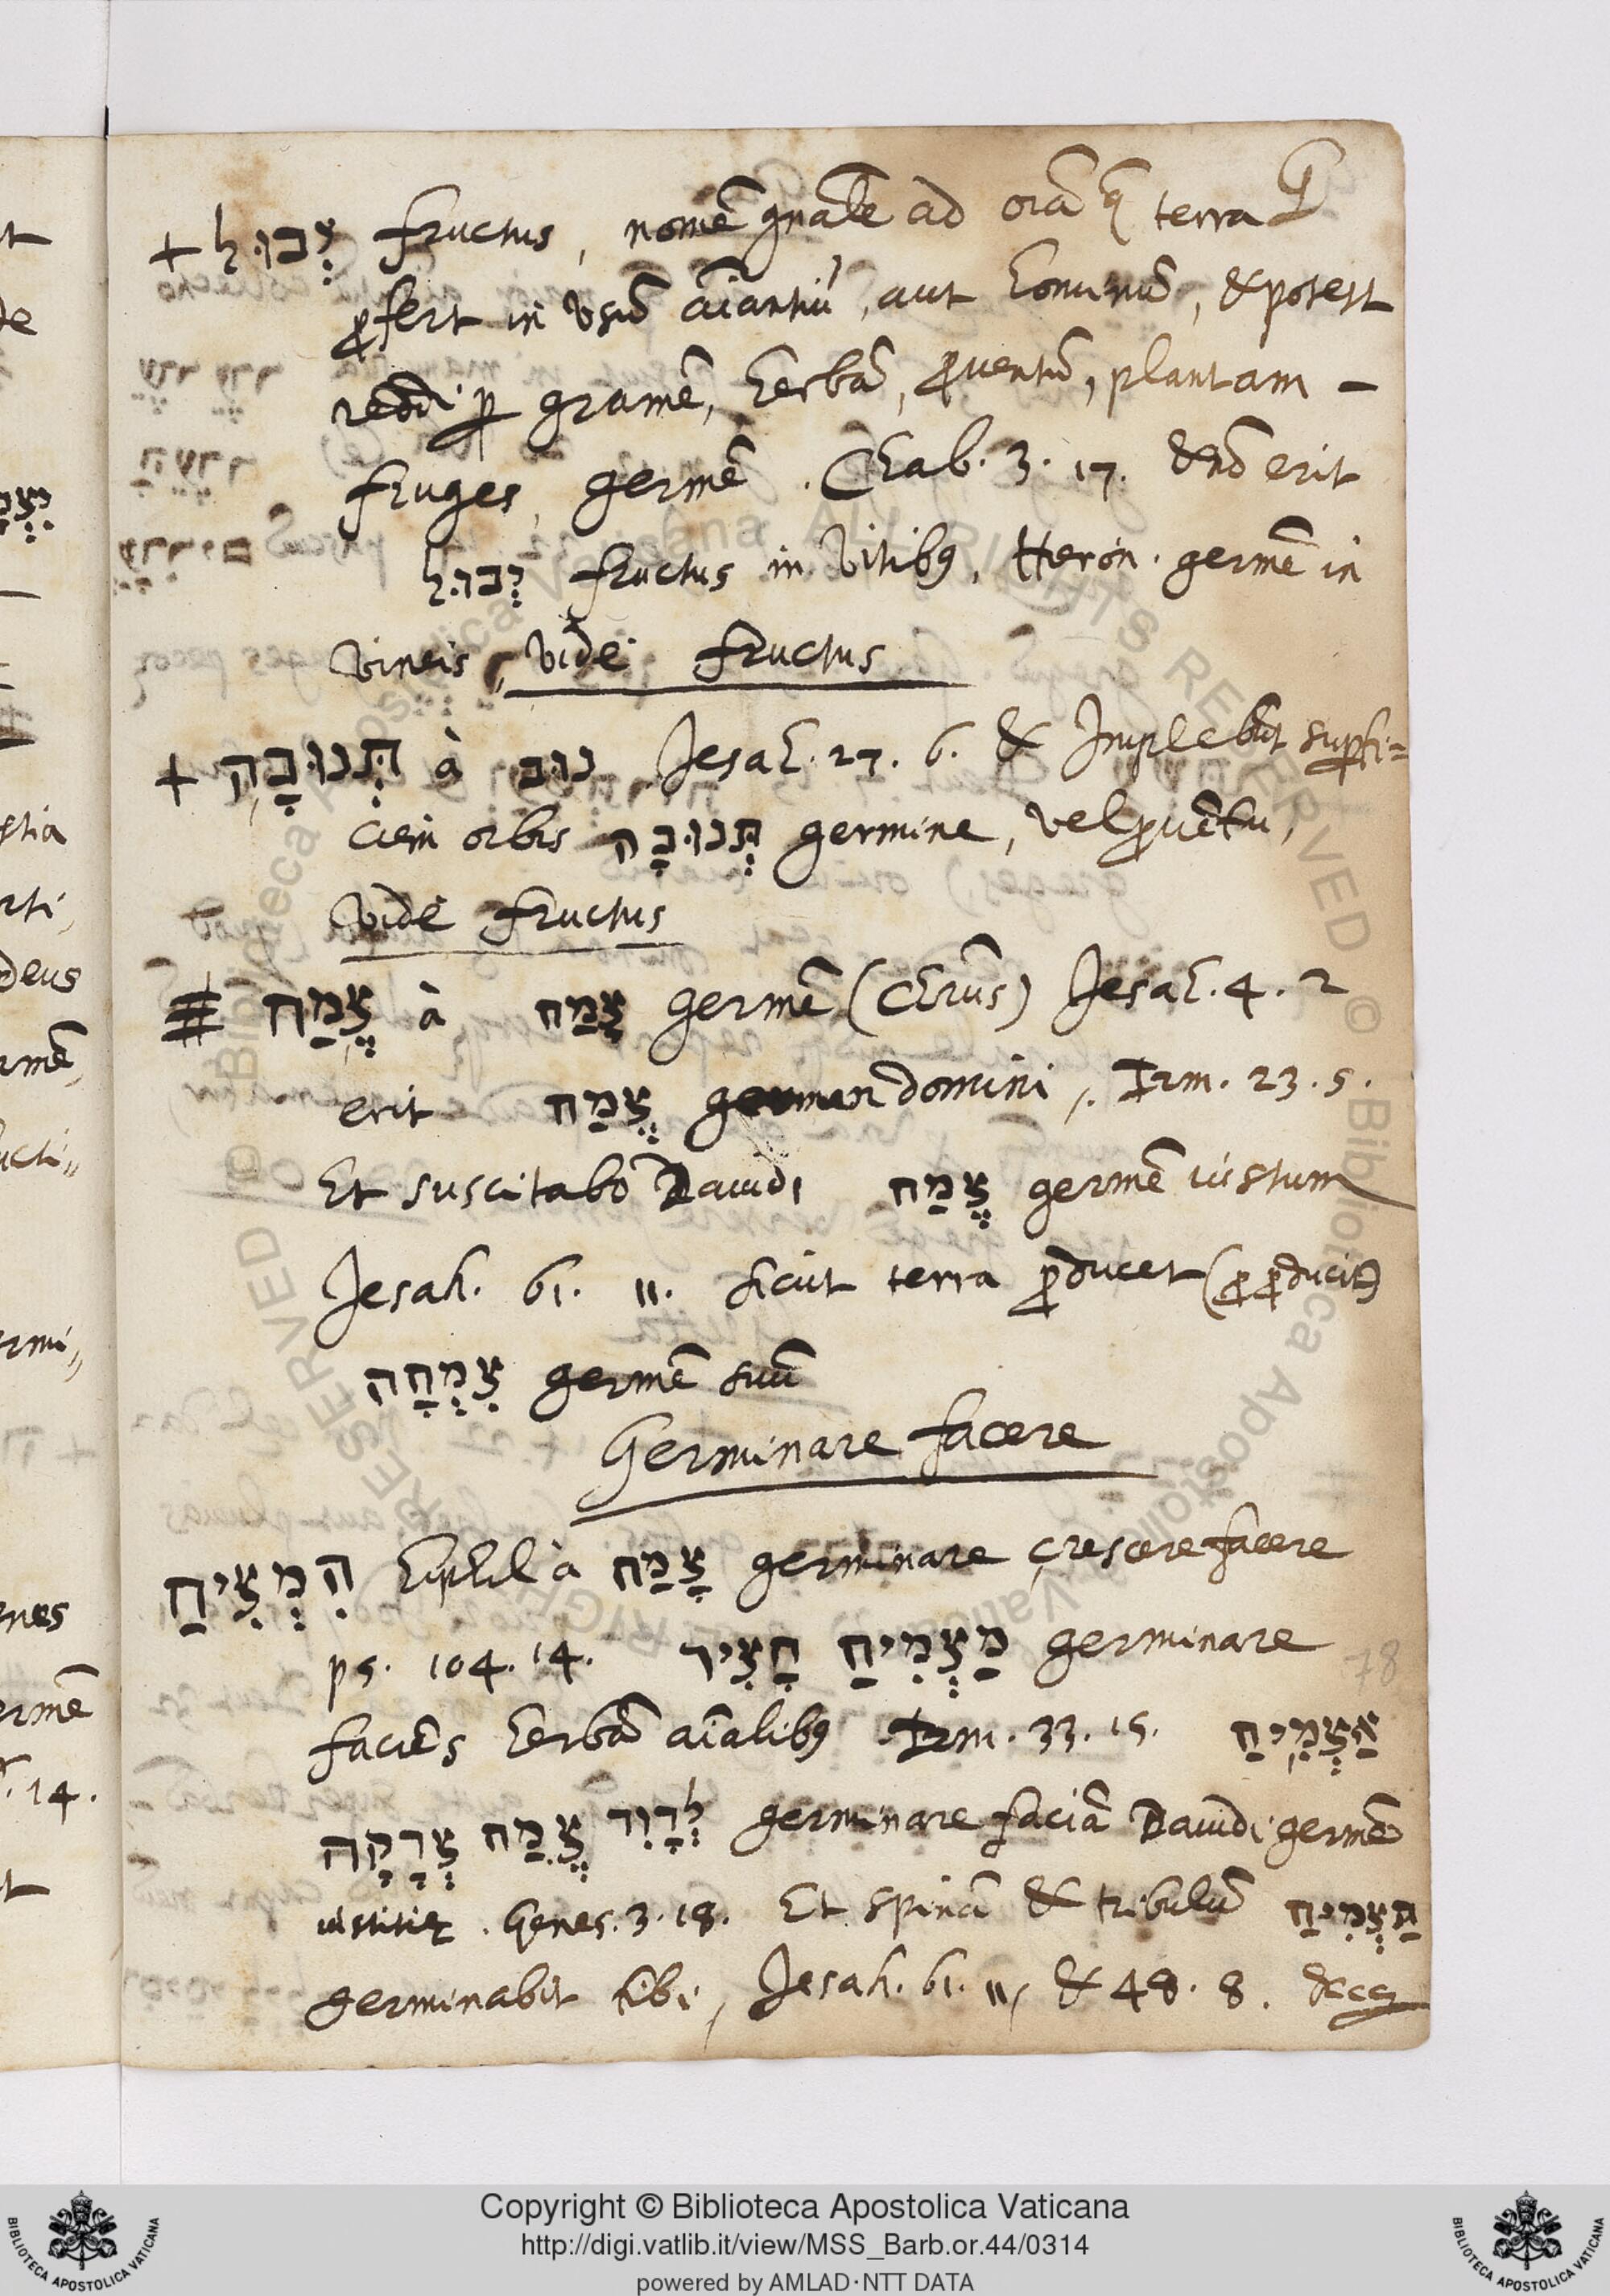 G
+ יְבוּל fructus, nomē gnāle ad oīa q̄ terra
ꝓfert in vsū aīantiū, aut hominū, & potest
reddi ꝓ gramē, herbā, ꝓuentū, plantam -
fruges, germē. Chab. 3. 17. & nō erit
יְבוּל fructus in vitibꝰ, Hierōn. germē in
vineis, vide fructus
+ תְּנוּבָה à נוּב Jesah. 27. 6. & Implebūt suꝑfi=
ciem orbis תְּנוּבָה germine, vel ꝓuētu,
vide fructus
צֶמַח à צָמַח germē (Chrūs) Jesah. 4. 2
erit צֶמַח germen domini, Irm. 23. 5.
Et suscitabo Dauidi צֶמַח germē iustum
Jesah. 61. 11. sicut terra ꝓducet (ꝓ ꝓducit)
צִמְחָה germē suū
Germinare facere
הִמְצִיחַ hiphil à צָמַח germinare, crescere facere
ps. 104. 14. מַצְמִיחַ חָצִיר germinare
faciēs herbā aīalibꝰ Irm. 33. 15. אַצְמִיחַ
לְדָוִד צֶמַח צְדָקָה germinare faciā Dauidi germē
iustitię. Genes. 3. 18. Et spinā & tribulū תַּצְמִיחַ
germinabit tibi, Jesah. 61. 11, & 48. 8. &cc
78
Copyright © Biblioteca Apostolica Vaticana
http://digi.vatlib.it/view/MSS_Barb.or.44/0314
powered by AMLAD·NTT DATA
BIBLIOTECA APOSTOLICA VATICANA
BIBLIOTECA APOSTOLICA VATICANA